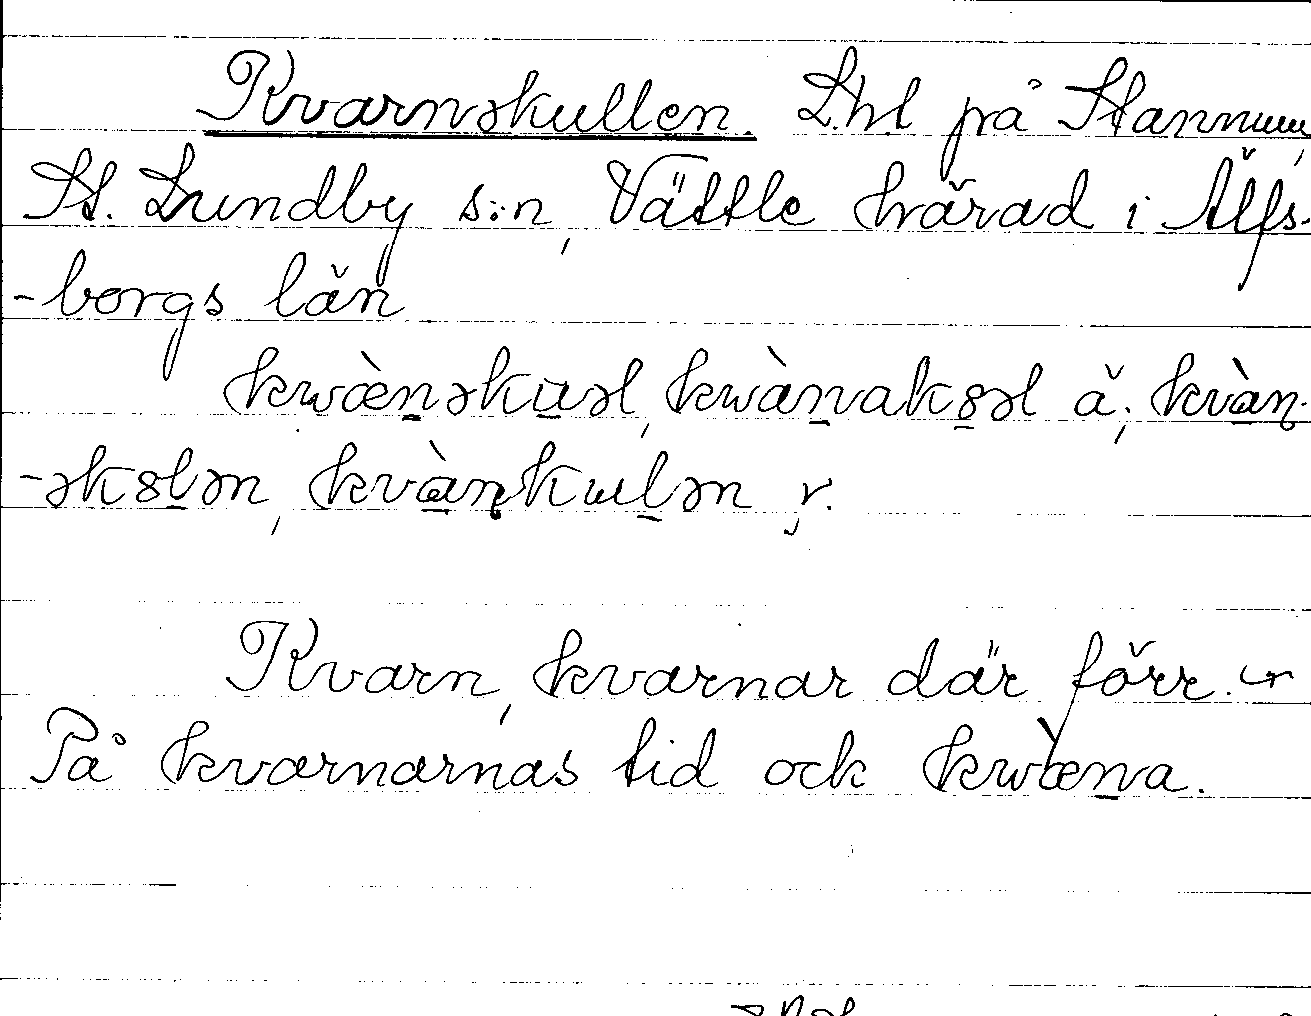 Kvarnskullen. L.hl på Stannum,
St. Lundby s:n, Vättle härad i Älfs-
-borgs län
kwæ̀nəkuəl, kwànakɞəl ä.; kvàn-
-əkɞlən, kvànkulən y.
Kvarn, kvarnar där förr.
På kvarnarnas tid ock kwæ̀na.